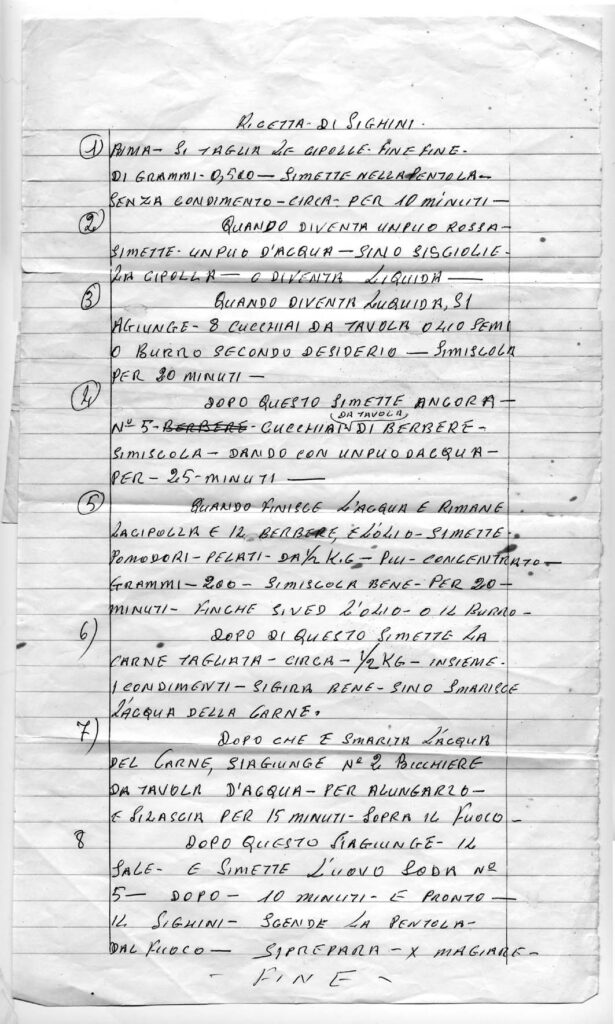 RICETTA-DI SIGHINI.
① PRIMA- SI TAGLIA LE CIPOLLE-FINE FINE-
DI GRAMMI-0,500-SIMETTE NELLA PENTOLA-
SENZA CONDIMENTO-CIRCA-PER 10 MINUTI-
② QUANDO DIVENTA UNPUO ROSSA-
SIMETTE-UNPUO D'ACQUA-SINO SISGIOLIE-
LA CIPOLLA-O DIVENTA LIQUIDA-
③ QUANDO DIVENTA LUQUIDA, SI
AGIUNGE-8 CUCCHIAI DA TAVOLA OLIO SEMI
O BURRO SECONDO DESIDERIO-SIMISCOLA
PER 20 MINUTI-
④ DOPO QUESTO SIMETTE ANCORA-
DA TAVOLA
Nº 5-BERBERE-CUCCHIAI DI BERBERE-
SIMISCOLA-DANDO CON UNPUO DACQUA-
PER-25-MINUTI-
⑤ QUANDO FINISCE L'ACQUA E RIMANE
LACIPOLLA E IL BERBERE, E L'OLIO-SIMETTE-
POMODORI-PELATI-DA 1/2 K.G-PIU-CONCENTRATO-
GRAMMI-200-SIMISCOLA BENE-PER 20-
MINUTI-FINCHE SIVED L'OLIO-O IL BURRO-
6) DOPO DI QUESTO SIMETTE LA
CARNE TAGLIATA-CIRCA-1/2 KG-INSIEME-
I CONDIMENTI-SIGIRA BENE-SINO SMARISCE
L'ACQUA DELLA CARNE.
7) DOPO CHE E SMARITA L'ACQUA
DEL CARNE, SIAGIUNGE Nº 2 BICCHIERE
DA TAVOLA D'ACQUA-PER ALUNGARLO-
E SILASCIA PER 15 MINUTI-SOPRA IL FUOCO-
8 DOPO QUESTO SIAGIUNGE-IL
SALE-E SIMETTE L'UOVO SODA Nº
5-DOPO-10 MINUTI-E PRONTO-
IL SIGHINI-SCENDE LA PENTOLA-
DAL FUOCO-SIPREPARA-X MAGIARE-
-FINE-